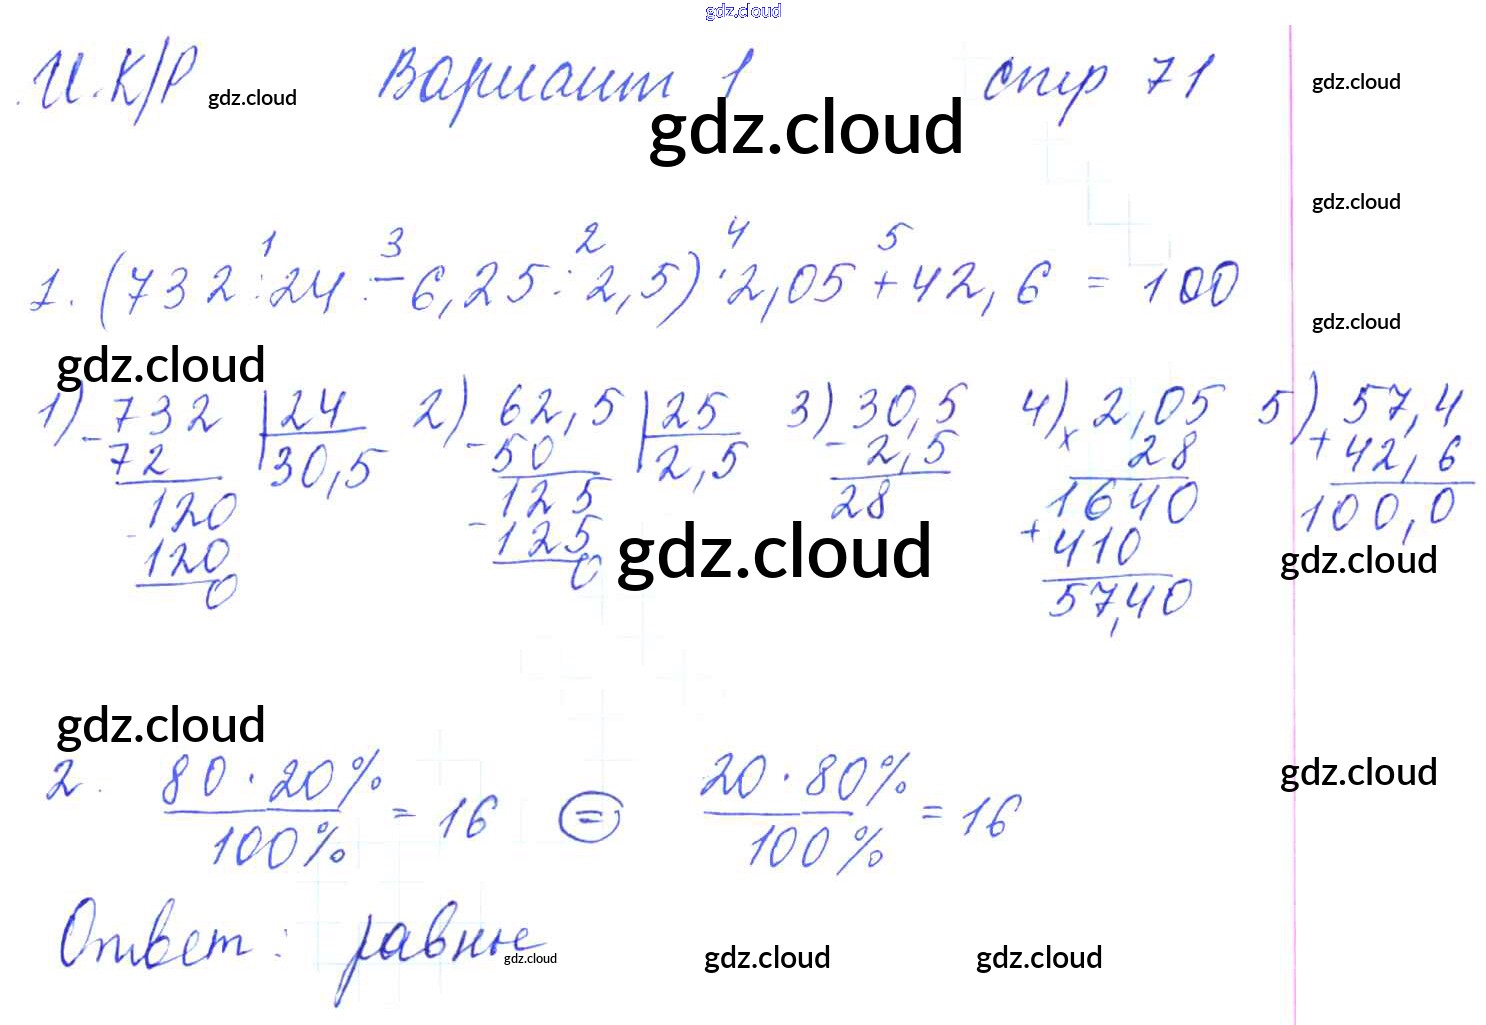 gdz.cloud
И.К/Р gdz.cloud Вариант 1 стр 71 gdz.cloud
gdz.cloud
gdz.cloud
1 3 2 4 5
1. (732 : 24 - 6,25 : 2,5) · 2,05 + 42,6 = 100
gdz.cloud
gdz.cloud
1) 732 | 24 2) 62,5 | 25 3) 30,5 4) 2,05 5) 57,4
- 72 30,5 - 50 2,5 - 2,5 x 28 + 42,6
120 125 28 1640 100,0
- 120 - 125 + 410
0 0 57,40
gdz.cloud gdz.cloud
gdz.cloud
gdz.cloud
2. 80 · 20% / 100% = 16 = 20 · 80% / 100% = 16
Ответ: равные
gdz.cloud gdz.cloud gdz.cloud